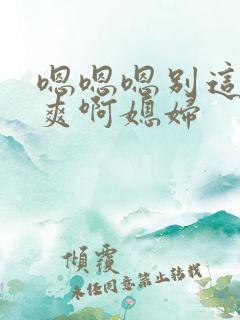 嗯嗯嗯别這
爽啊媳婦
傾覆
未任同意禁止转载